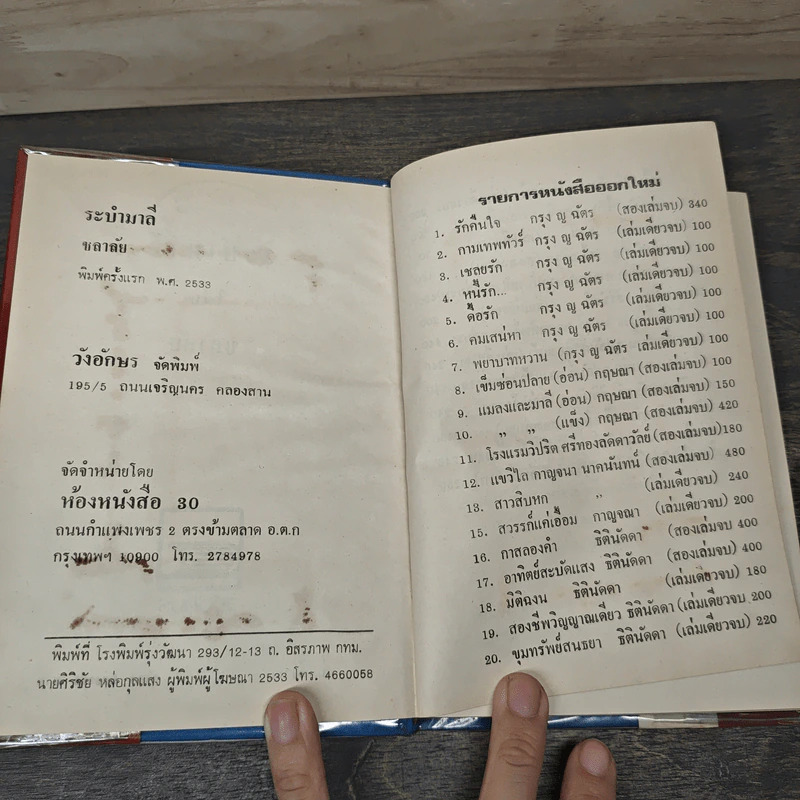 ระบำมาลี
ชลาลัย
พิมพ์ครั้งแรก พ.ศ. 2533
วังอักษร จัดพิมพ์
195/5 ถนนเจริญนคร คลองสาน
จัดจำหน่ายโดย
ห้องหนังสือ 30
ถนนกำแพงเพชร 2 ตรงข้ามตลาด อ.ต.ก
กรุงเทพฯ 10900 โทร. 2784978
พิมพ์ที่ โรงพิมพ์รุ่งวัฒนา 293/12-13 ถ. อิสรภาพ กทม.
นายศิริชัย หล่อกุลแสง ผู้พิมพ์ผู้โฆษณา 2533 โทร. 4660058
รายการหนังสือออกใหม่
1. รักคืนใจ กรุง ญ ฉัตร (สองเล่มจบ) 340
2. กามเทพทัวร์ กรุง ญ ฉัตร (เล่มเดียวจบ) 100
3. เชลยรัก กรุง ญ ฉัตร (เล่มเดียวจบ) 100
4. หนี้รัก... กรุง ญ ฉัตร (เล่มเดียวจบ) 100
5. ดื้อรัก กรุง ญ ฉัตร (เล่มเดียวจบ) 100
6. คมเสน่หา กรุง ญ ฉัตร (เล่มเดียวจบ) 100
7. พยาบาทหวาน (กรุง ญ ฉัตร เล่มเดียวจบ) 100
8. เข็มซ่อนปลาย (อ่อน) กฤษณา (สองเล่มจบ) 100
9. แมลงและมาลี (อ่อน) กฤษณา (สองเล่มจบ) 150
10. " " (แข็ง) กฤษณา (สองเล่มจบ) 420
11. โรงแรมวิปริต ศรีทองลัดดาวัลย์ (สองเล่มจบ) 180
12. แขวิไล กาญจนา นาคนันทน์ (สองเล่มจบ) 480
13. สาวสิบหก " (เล่มเดียวจบ) 240
15. สวรรก์แค่เอื้อม กาญจณา (เล่มเดียวจบ) 200
16. กาสลองคำ ธิตินัดดา (สองเล่มจบ 400
17. อาทิตย์สะบัดแสง ธิตินัดดา (สองเล่มจบ) 400
18. มิติฉงน ธิตินัดดา (เล่มเดียวจบ) 180
19. สองชีพวิญญาณเดียว ธิตินัดดา (เล่มเดียวจบ 200
20. ขุมทรัพย์สนธยา ธิตินัดดา (เล่มเดียวจบ) 220